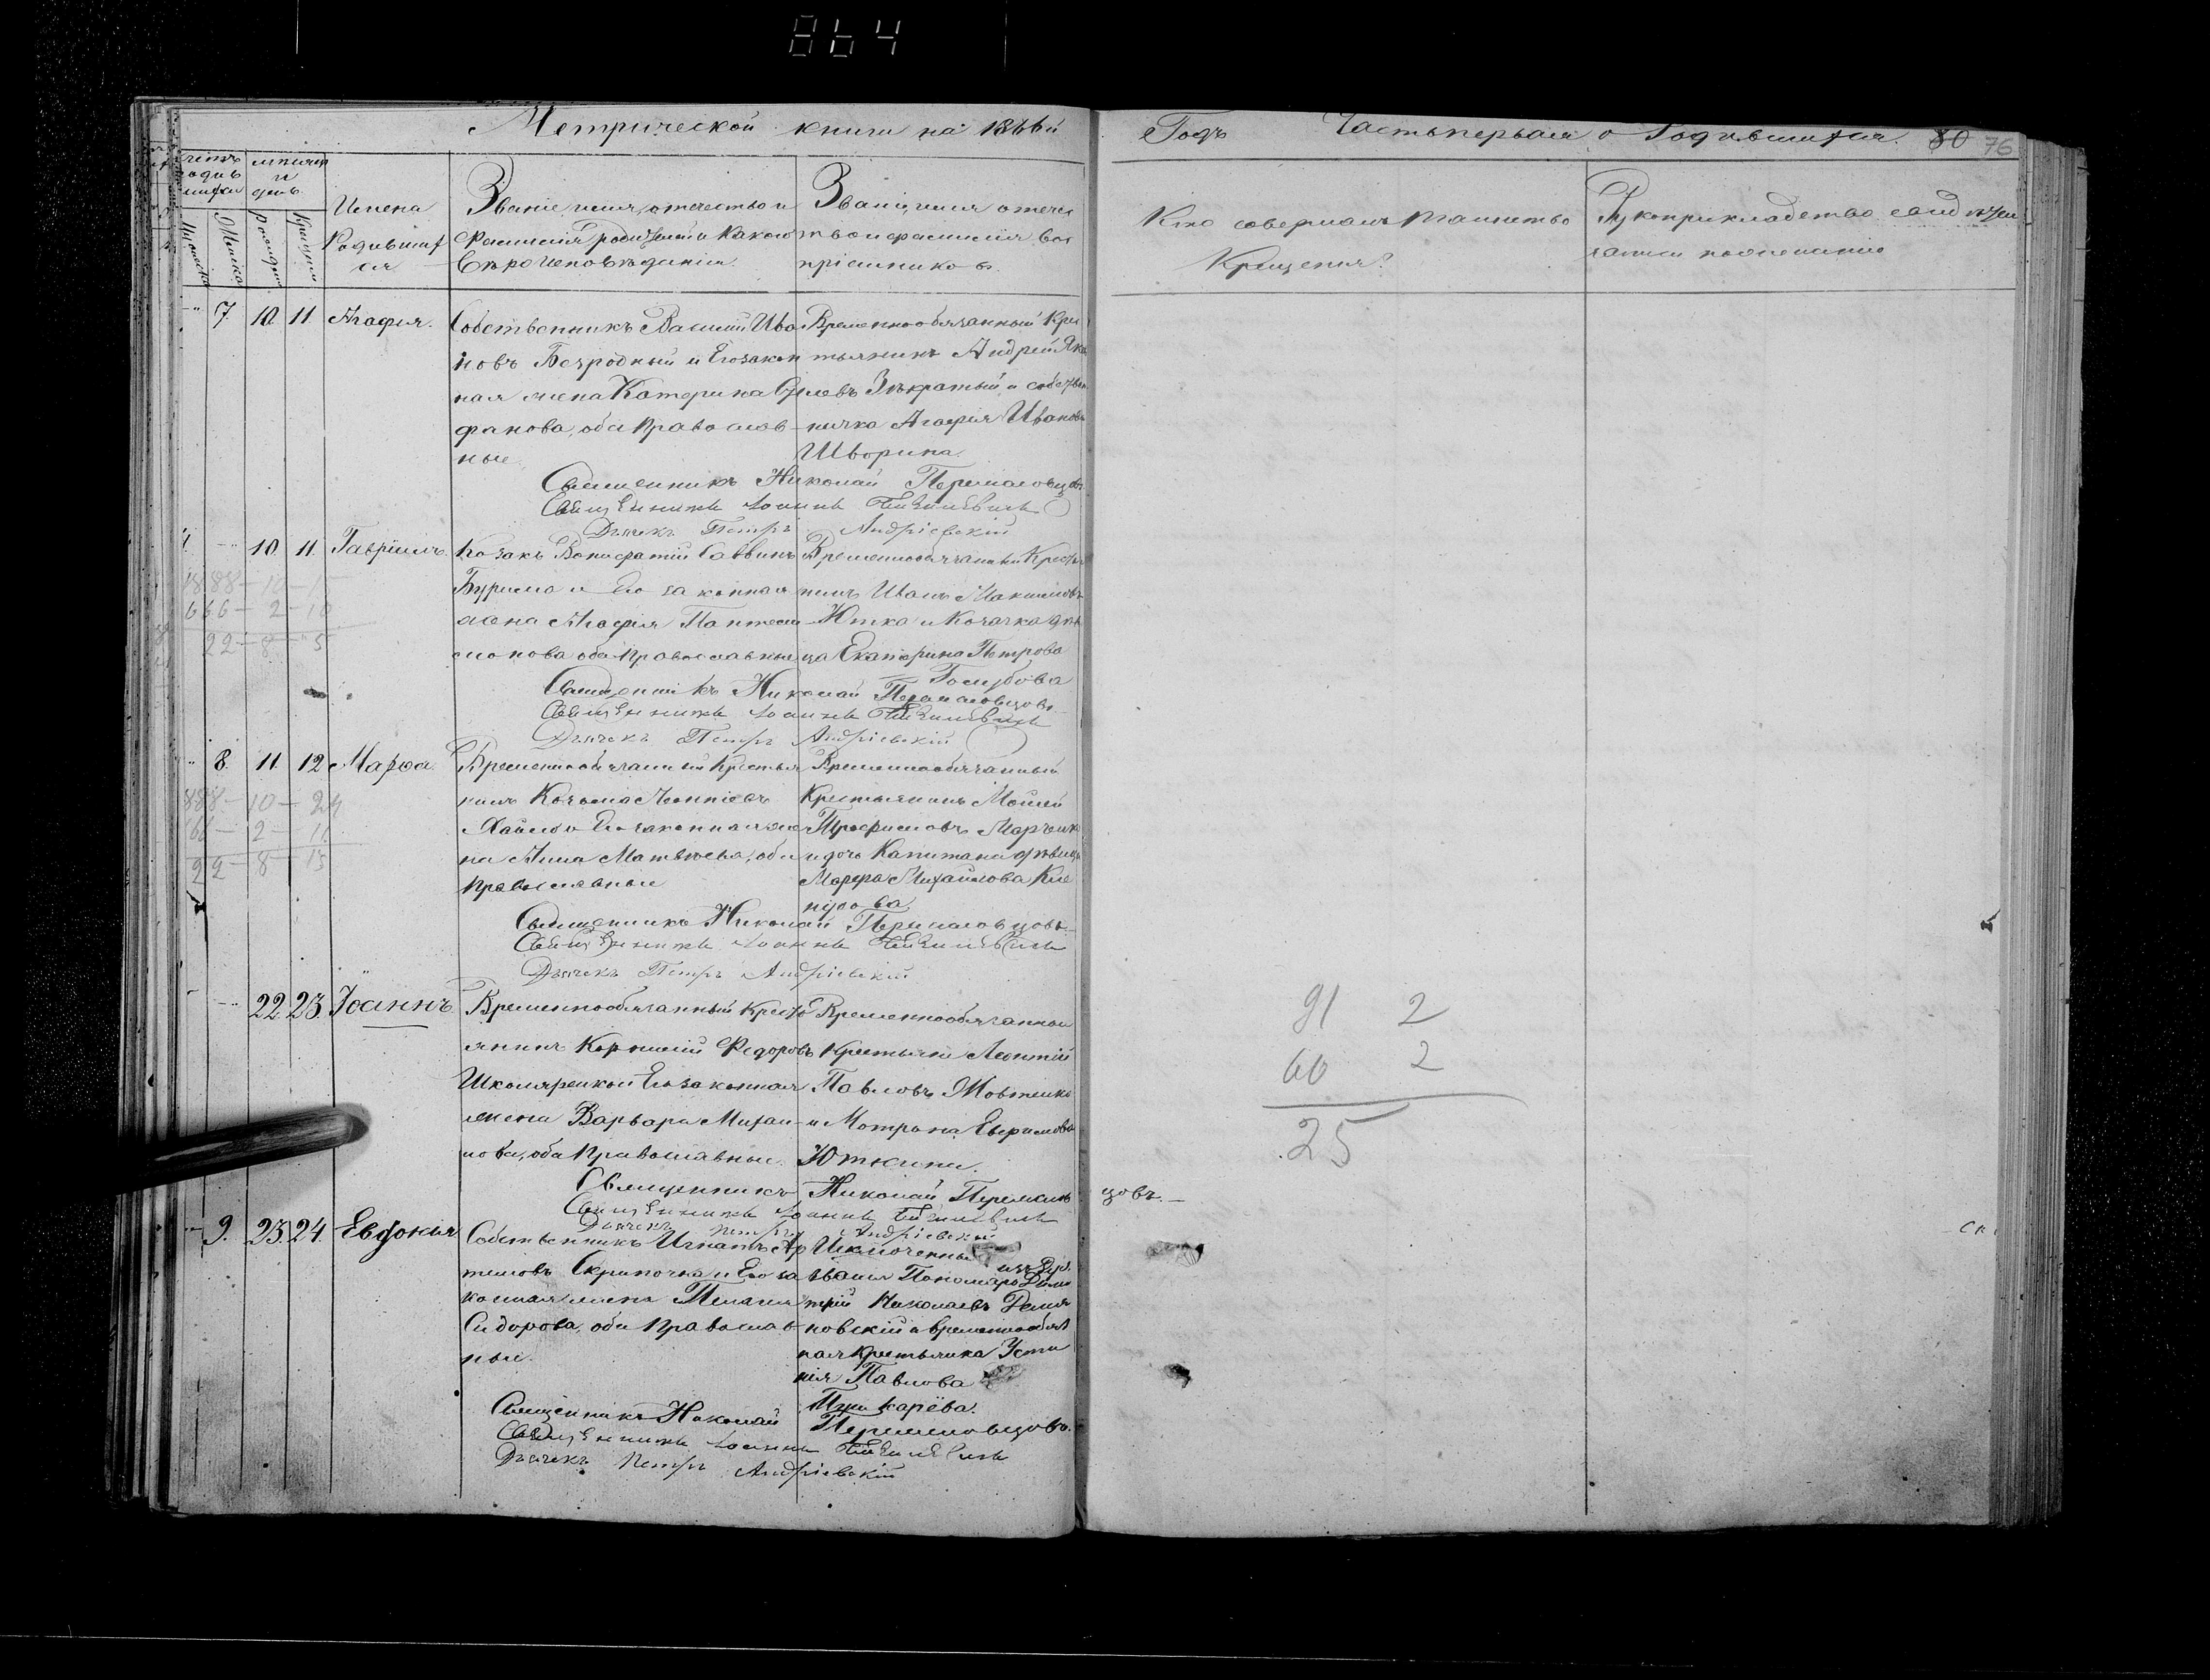 864
Метрической книги на 1866й
Годъ Часть первая о Родившихся. 80 76
Мѣсяцъ и день.
Имена Родившихся
Званіе, имя, отчество и фамилія родителей и какого вѣроисповѣданія.
Званіе, имя отчество и фамилія воспріемниковъ.
Кто совершалъ таинство Крещенія?
Рукоприкладство свидѣтелей записи по желанію
7. 10. 11. Агафія.
Собственникъ Василій Ива
новъ Безродный и Его закон
ная жена Катерина
фанова, оба Православ-
ные
Временнообязанный Кре
стьянинъ Андрей Яко
влевъ и собствен
ничка Агафія Иванова
Шворина.
Священникъ Николай Перемаловцовъ
Священникъ Іоаннъ
Дьячекъ Петръ Андріевскій
10. 11. Гавріилъ.
Козакъ Вонифатій Саввинъ
Бурима и Его законная
жена Агафія Пантели
монова оба Православные
Временнообязанный Крестья
нинъ Иванъ Максимовъ
Ютка и Козачка дѣви
ца Екатерина Петрова
Голубова
1888 - 10 - 1
666 - 2 - 10
22 - 8 - 5
Священникъ Николай Перемаловцовъ
Священникъ Іоаннъ
Дьячекъ Петръ Андріевскій
8. 11. 12 Марфа.
Временнообязанный Крестья
нинъ Козьма Леонтіевъ
и Его законная же
на Анна Матвѣева, оба
Православные
Временнообязанный
Крестьянинъ Моисей
Трофимовъ Марченко
и дочь Капитана дѣвица
Марфа Михайлова
888 - 10 - 24
66 - 2 - 11
22 - 8 - 13
Священникъ Николай Перемаловцовъ
Священникъ Іоаннъ
Дьячекъ Петръ Андріевскій
22. 23. Іоаннъ
Временнообязанный Кресть
янинъ Корнилій Федоровъ
Школяренко и Его законная
жена Варвара Михаи
лова, оба Православные.
Временнообязанный
Крестьянинъ Леонтій
Павловъ Жовтенко
и Мотрона Ефимова
Юткина.
91 2
66 2
25
Священникъ Николай Перемалов
цовъ.
Священникъ Іоаннъ
Дьячекъ Петръ Андріевскій
9. 23. 24. Евдокія
Собственникъ Игнатъ Ар
темовъ Скрипочка и Его за
конная жена Пелагія
Сидорова, оба Православ
ные.
Исключенный изъ Дух.
званія Пономарь Дими
трій Николаевъ Демя
новскій и временнообяз
ная крестьянка Усти
нія Павлова
Пушкарёва.
Священникъ Николай Перемаловцовъ.
Священникъ Іоаннъ
Дьячекъ Петръ Андріевскій